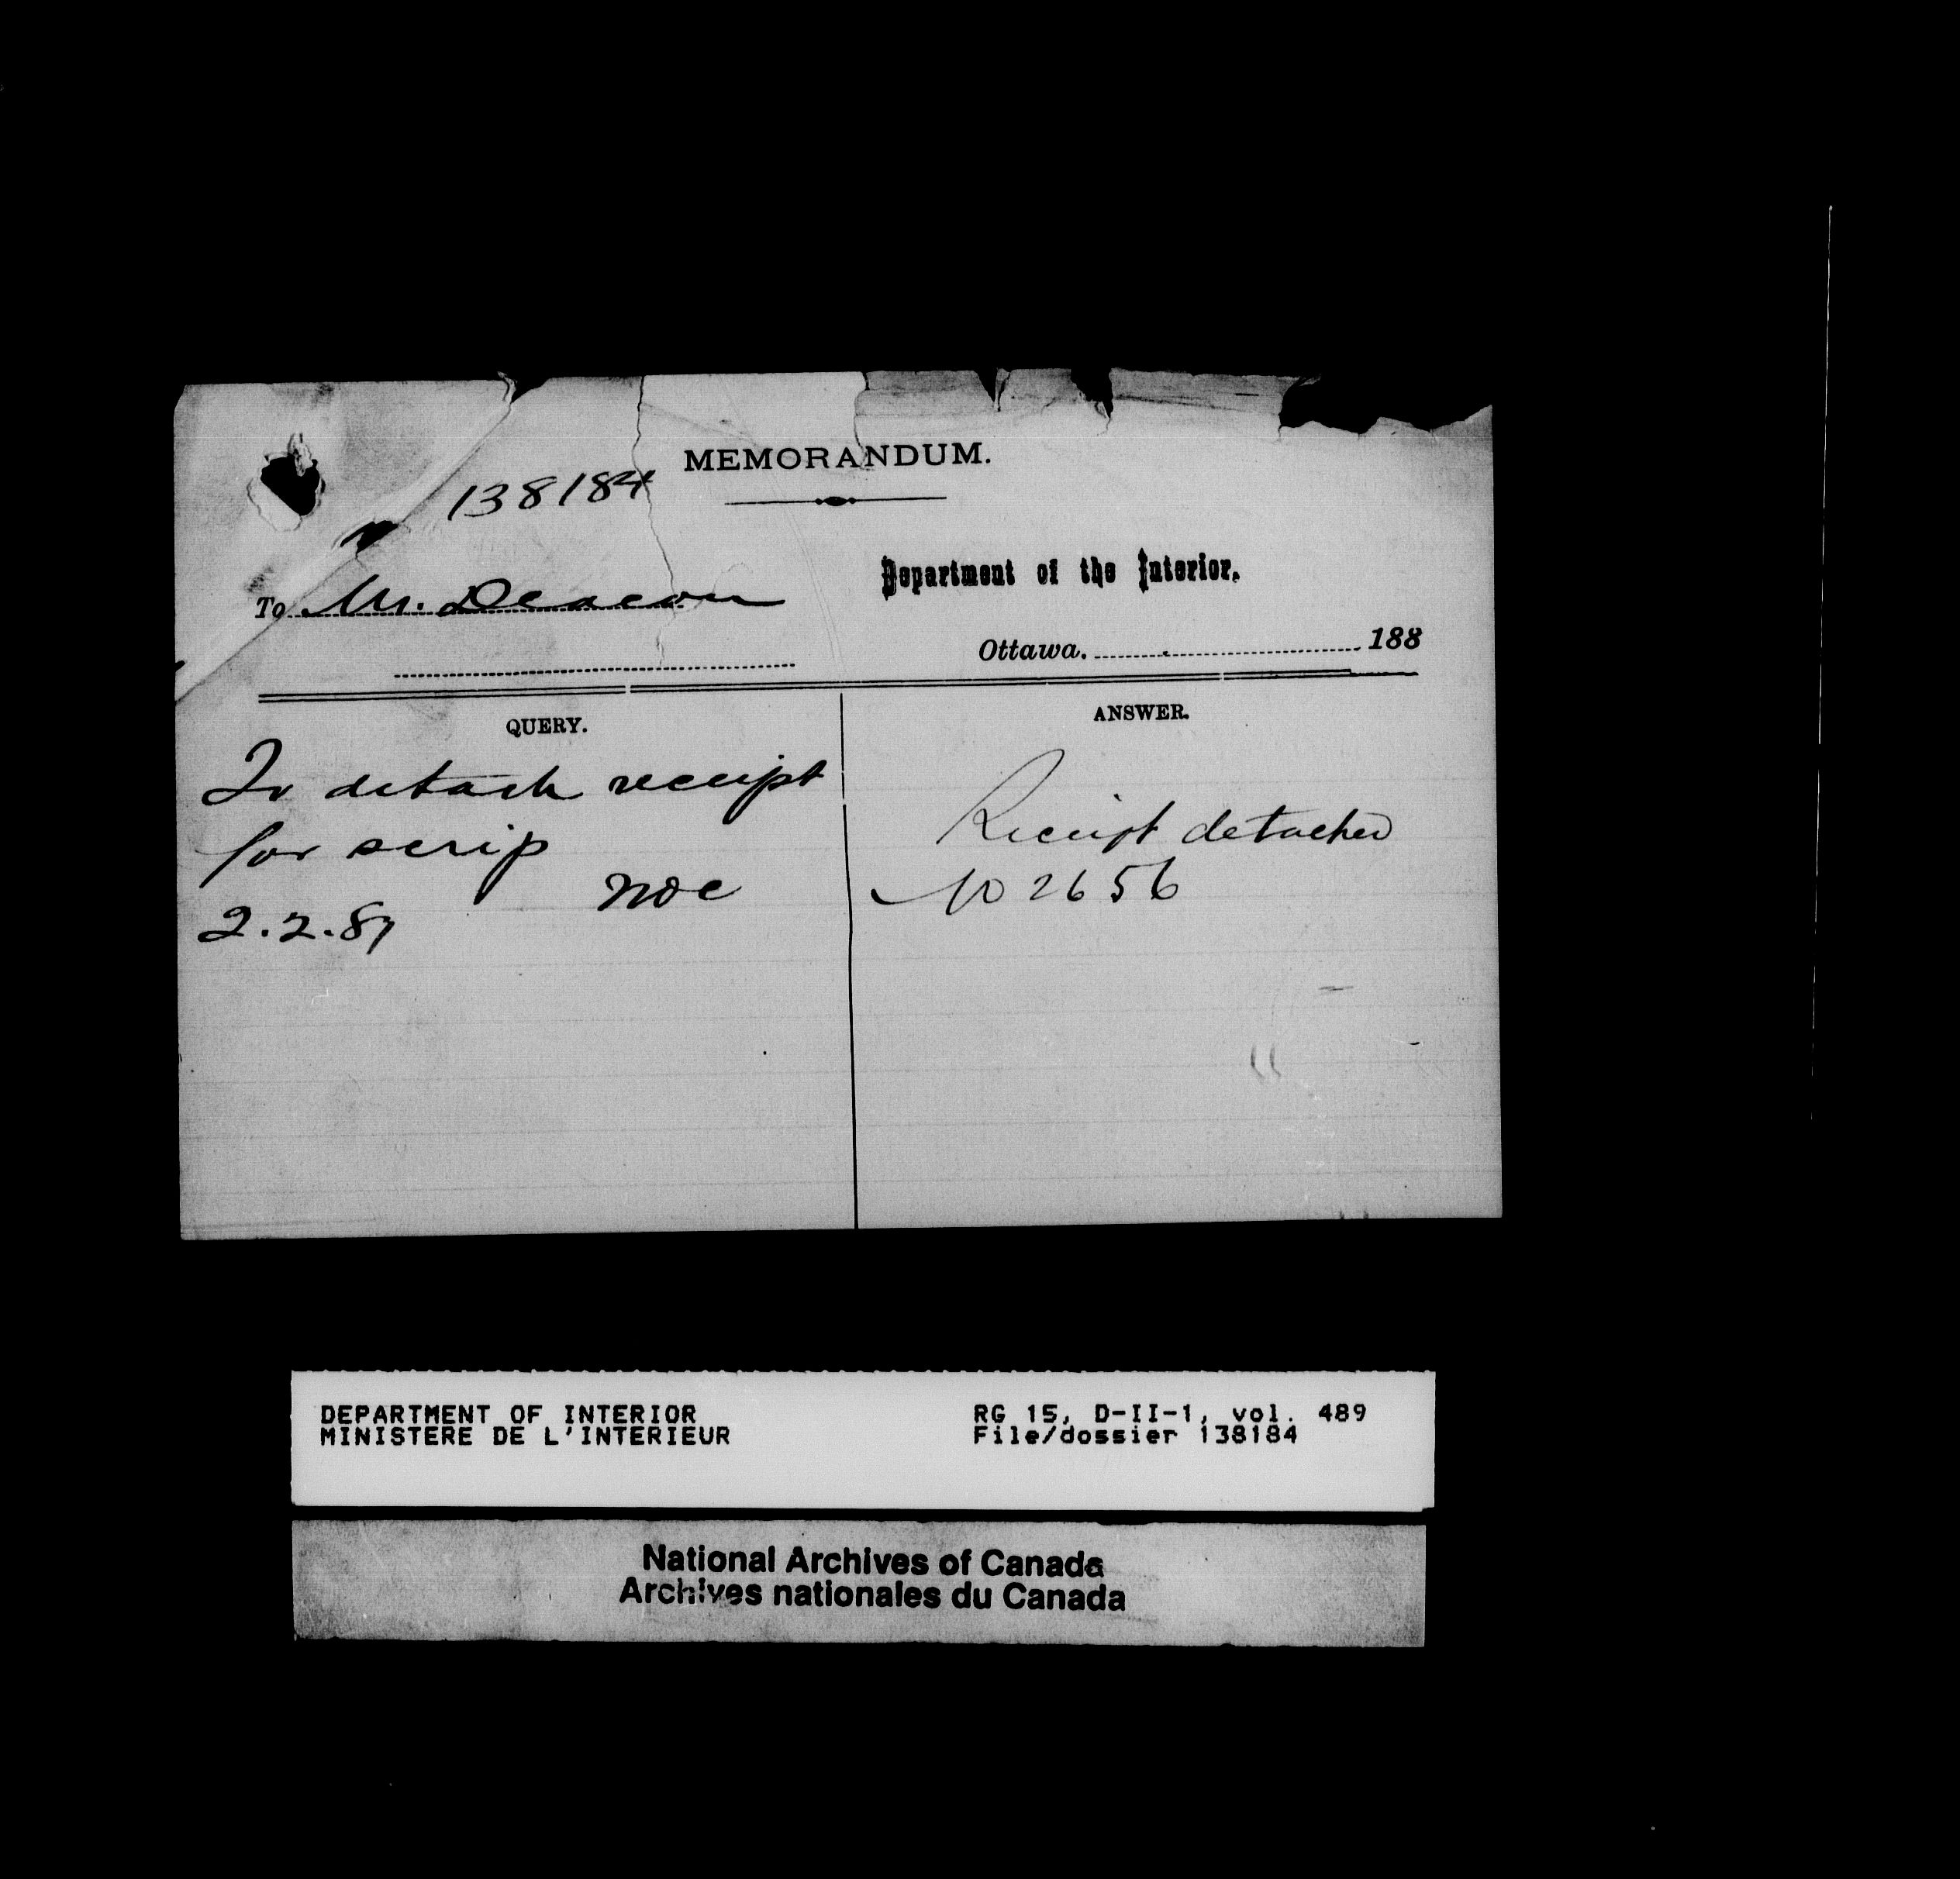 MEMORANDUM.
138184
Department of the Interior.
To Mr. Deacon
Ottawa. 188
QUERY.
To detach receipt
for scrip
2.2.87
ANSWER.
Receipt detached
No 2656
DEPARTMENT OF INTERIOR
MINISTERE DE L'INTERIEUR
RG 15, D-II-1, vol. 489
File/dossier 138184
National Archives of Canada
Archives nationales du Canada